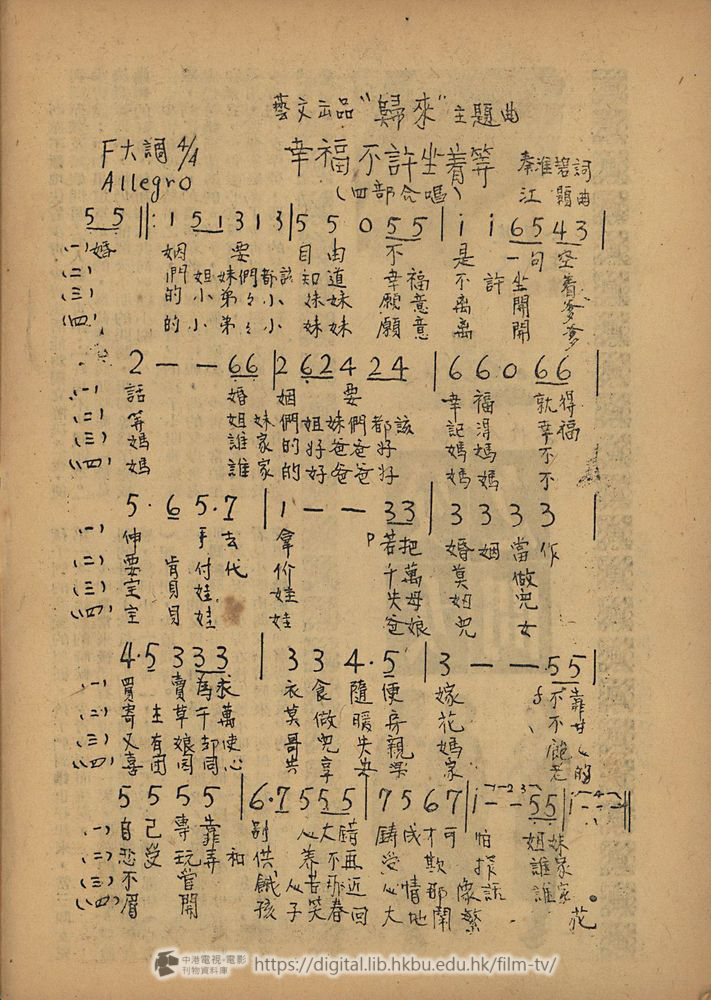 藝文出品“歸來”主題曲
F大調 4/4
幸福不許坐着等 秦淮碧詞
Allegro
(四部合唱) 江 題曲
5 5 ‖: 1 5 1 3 1 3 | 5 5 0 5 5 | i i 6 5 4 3 |
(一) 婚 姻 要 自 由 不 是 一 句 空
(二) 們 姐 妹 們 都 該 知 道 幸 福 不 許 坐 着
(三) 的 小 弟 々 小 妹 妹 願 意 離 開 爹
(四) 的 小 弟 々 小 妹 妹 願 意 離 開 爹
2 — — 6 6 | 2 6 2 4 2 4 | 6 6 0 6 6 |
(一) 話 婚 姻 要 幸 福 就 得
(二) 等 姐 妹 們 姐 妹 們 都 該 記 得 幸 福
(三) 媽 誰 家 的 好 爸 爸 好 媽 媽 不
(四) 媽 誰 家 的 好 爸 爸 好 媽 媽 不
5 · 6 5 · 7 | 1 — — 3 3 | 3 3 3 3 |
(一) 伸 手 去 拿 P 若 把 婚 姻 當 作
(二) 要 肯 付 代 价 千 萬 莫 做
(三) 宝 貝 娃 娃 失 母
(四) 宝 貝 娃 娃 爸 娘 兒 女
4 · 5 3 3 3 | 3 3 4 · 5 | 3 — — 5 5 |
(一) 買 賣 為 求 衣 食 隨 便 嫁 f 不 靠
(二) 寄 生 草 千 萬 莫 做 暖 房 花 不 甘
(三) 又 有 娘 却 使 哥 兒 失 親 媽
(四) 喜 同 同 心 共 享 樂 家
5 5 5 5 | 6 · 7 5 5 5 | 7 5 6 7 | i — — 5 5 | i — — ‖
(一) 自 己 專 靠 別 人 大 錯 鑄 成 才 可 怕 姐 妹
(二) 忍 受 玩 弄 和 供 養 不 再 受 欺 誰 家
(三) 不 管 餓 心 苦 那 近 心 情 那 像 話 誰 家
(四) 眉 開 孩 子 笑 春 回 大 地 鬧 繁 花
中港電視・電影
刊物資料庫
https://digital.lib.hkbu.edu.hk/film-tv/